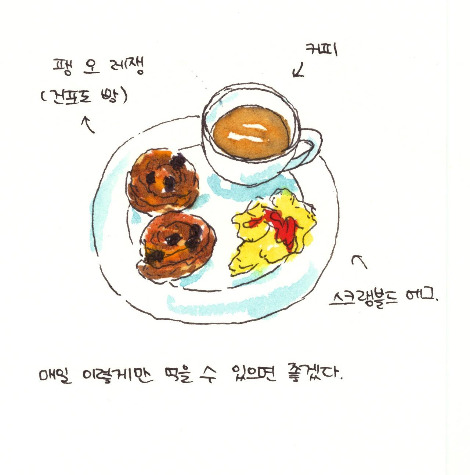 커피
팽 오 레쟁
(건포도 빵)
스크램블드 에그.
매일 이렇게만 먹을 수 있으면 좋겠다.